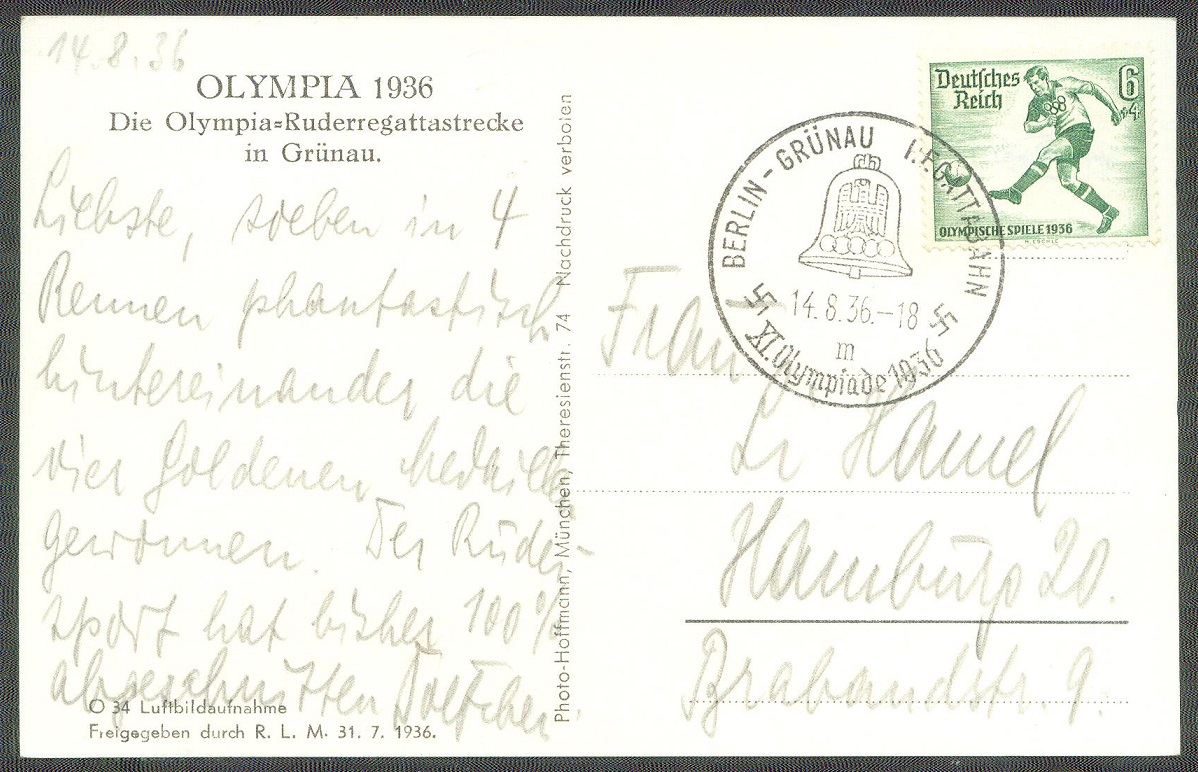 14.8.36
OLYMPIA 1936
Die Olympia=Ruderregattastrecke
in Grünau.
Liebste, soeben in 4
Rennen phantastisch
hintereinander die
vier goldenen Medaill
gewonnen. Der Ruder-
sport hat bisher 100%
abgeschnitten
O 34 Luftbildaufnahme
Freigegeben durch R. L. M. 31. 7. 1936.
Photo-Hoffmann, München, Theresienstr. 74 Nachdruck verboten
Deutsches
Reich
6
+4
OLYMPISCHE SPIELE 1936
BERLIN-GRÜNAU REGATTABAHN
14.8.36.-18
m
XI. Olympiade 1936
Frau
Hamel
Hamburg 20.
Brabandstr. 9.